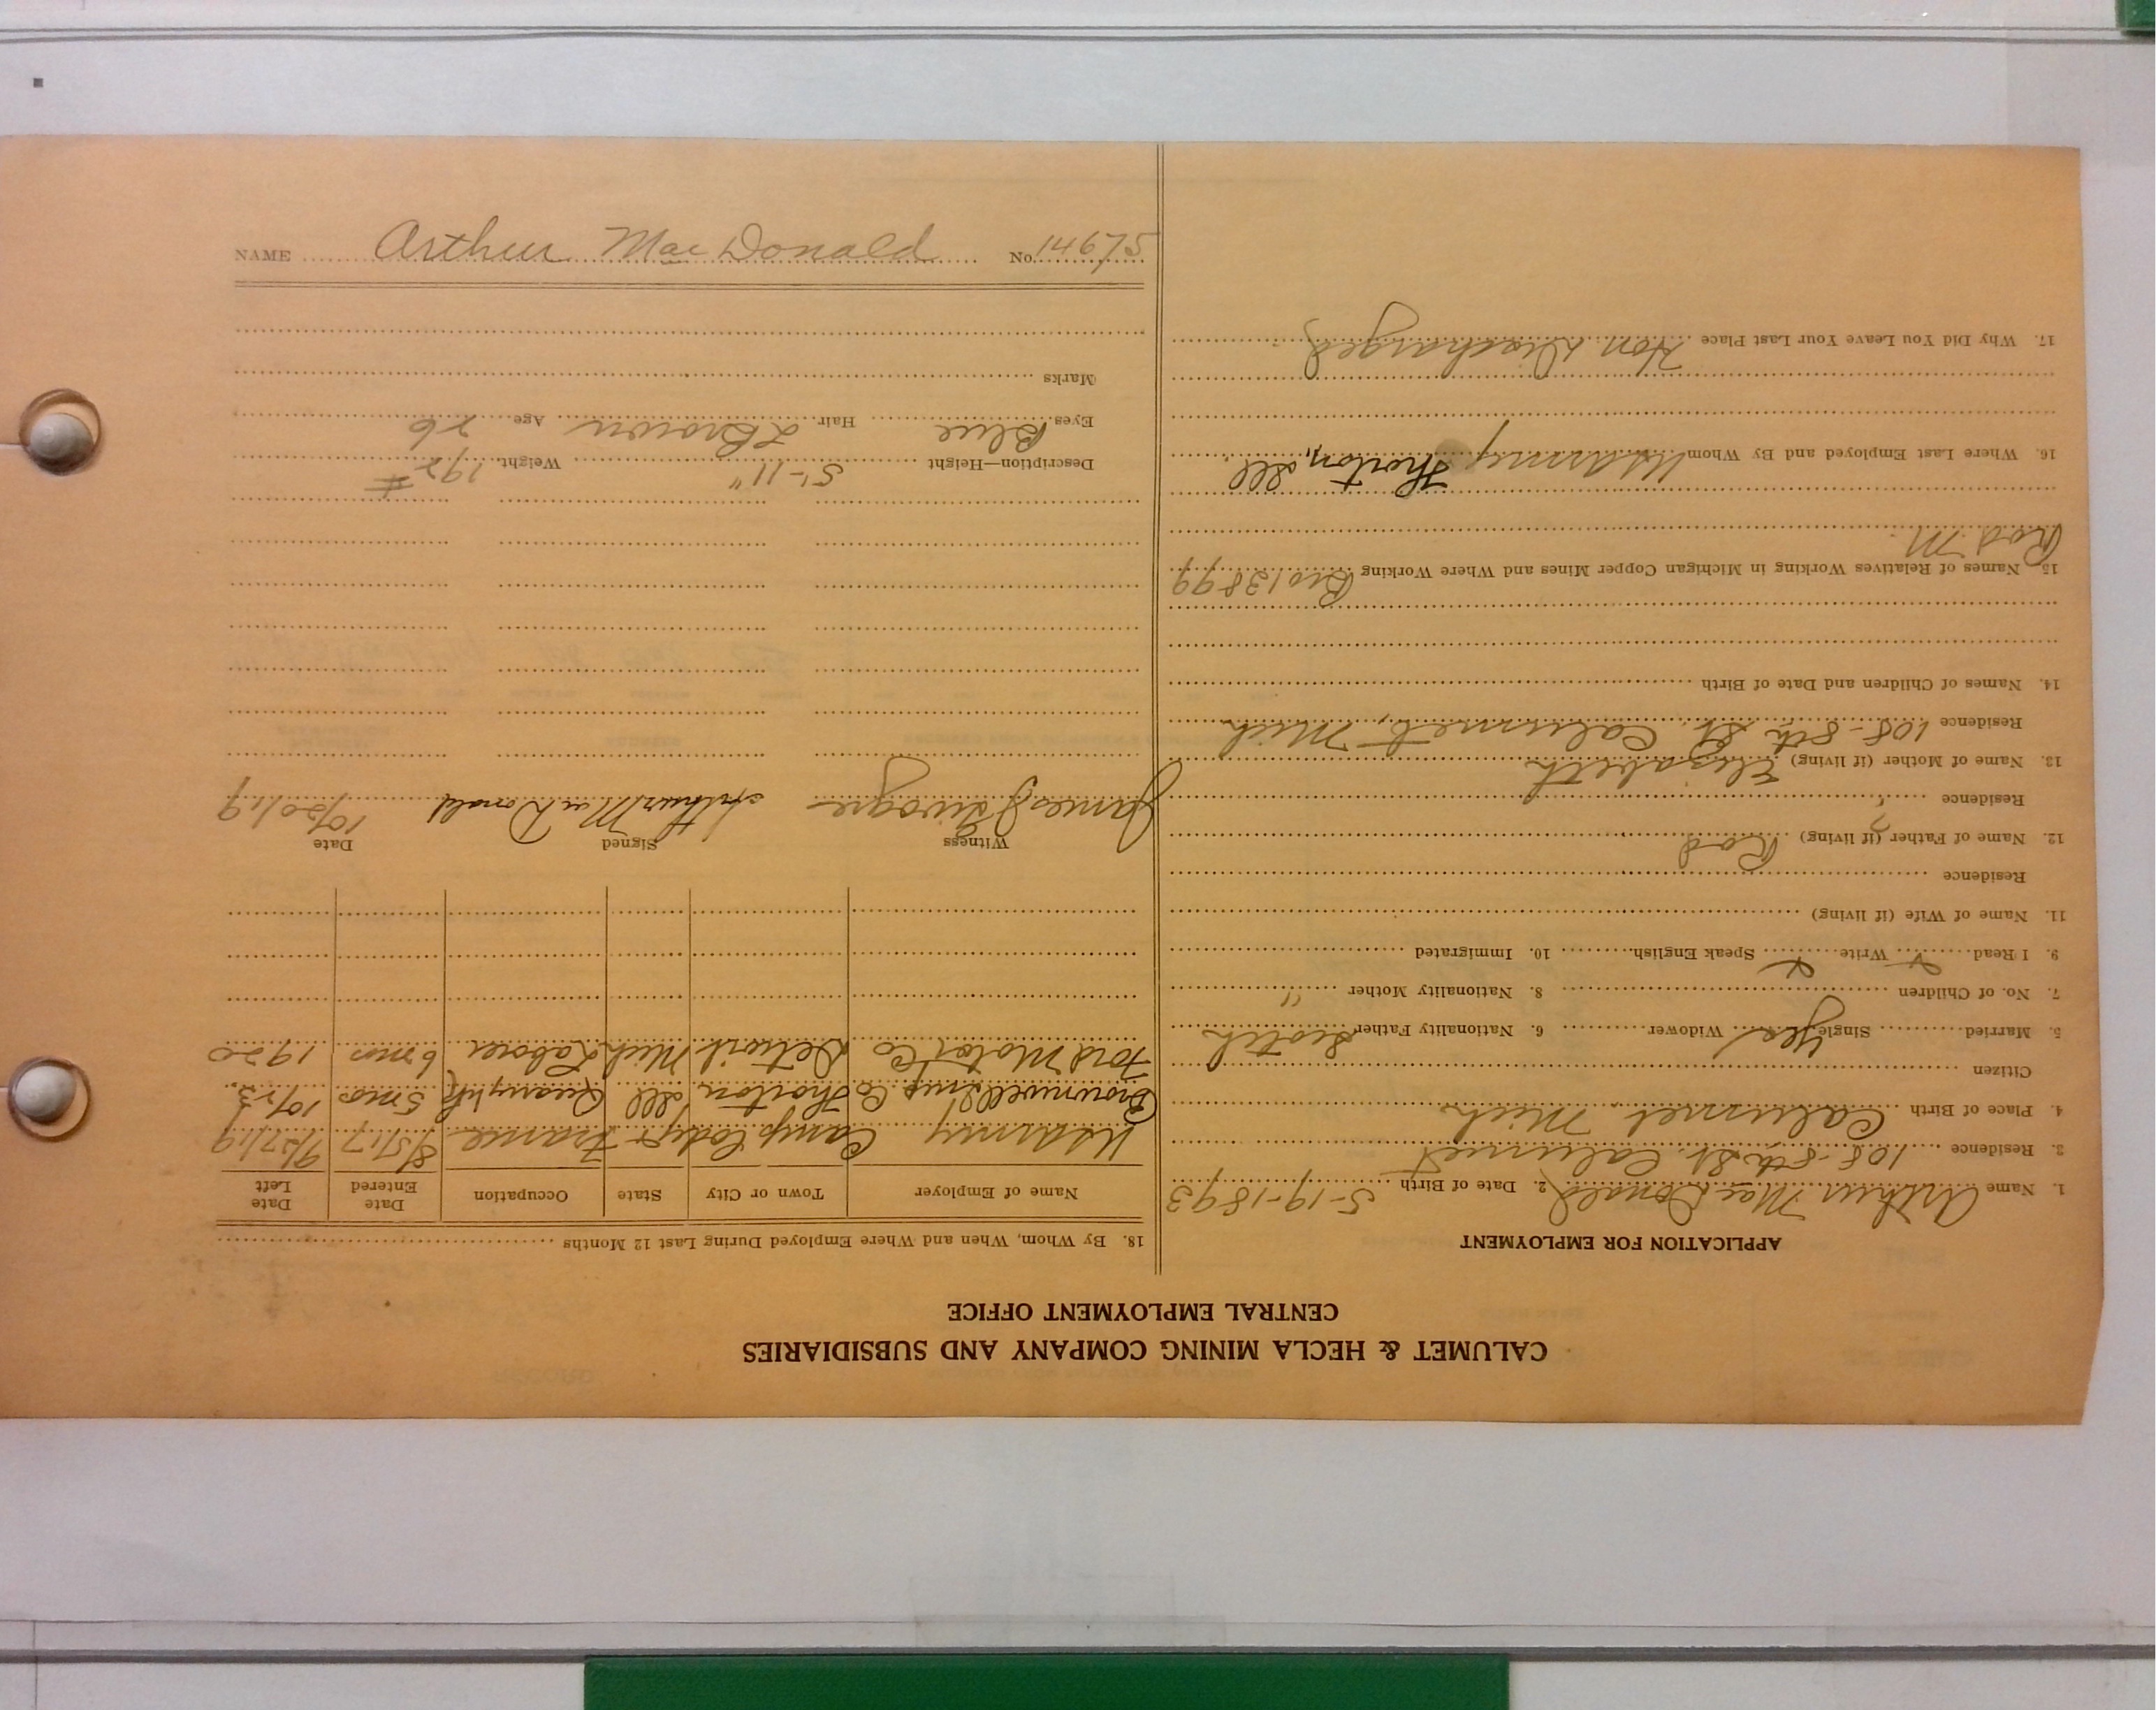 CALUMET & HECLA MINING COMPANY AND SUBSIDIARIES
CENTRAL EMPLOYMENT OFFICE
APPLICATION FOR EMPLOYMENT
1. Name Arthur MacDonald 2. Date of Birth 5-19-1893
3. Residence 108-8th St. Calumet
4. Place of Birth Calumet, Mich
Citizen
5. Married Single Yes Widower 6. Nationality Father Scotch
7. No. of Children 8. Nationality Mother "
9. I Read Write Speak English 10. Immigrated
11. Name of Wife (if living)
Residence
12. Name of Father (if living) Rod
Residence "
13. Name of Mother (if living) Elizabeth
Residence 108-8th St. Calumet, Mich
14. Names of Children and Date of Birth
15. Names of Relatives Working in Michigan Copper Mines and Where Working Bro 13899
Rod. M.
16. Where Last Employed and By Whom US Army Thorton, Ill
17. Why Did You Leave Your Last Place Hon Discharged
18. By Whom, When and Where Employed During Last 12 Months
Name of Employer Town or City State Occupation Date Entered Date Left
US Army Camp Cody + France 8/5/17 9/27/19
Brownwell Co Thorton Ill 5 mos 10/23
Ford Motor Co Detroit Mich Laborer 6 mos 1920
Witness Signed Date
James Arthur MacDonald 10/20/19
Description—Height 5'-11" Weight 192 #
Eyes Blue Hair L Brown Age 26
Marks
NAME Arthur MacDonald No. 14675